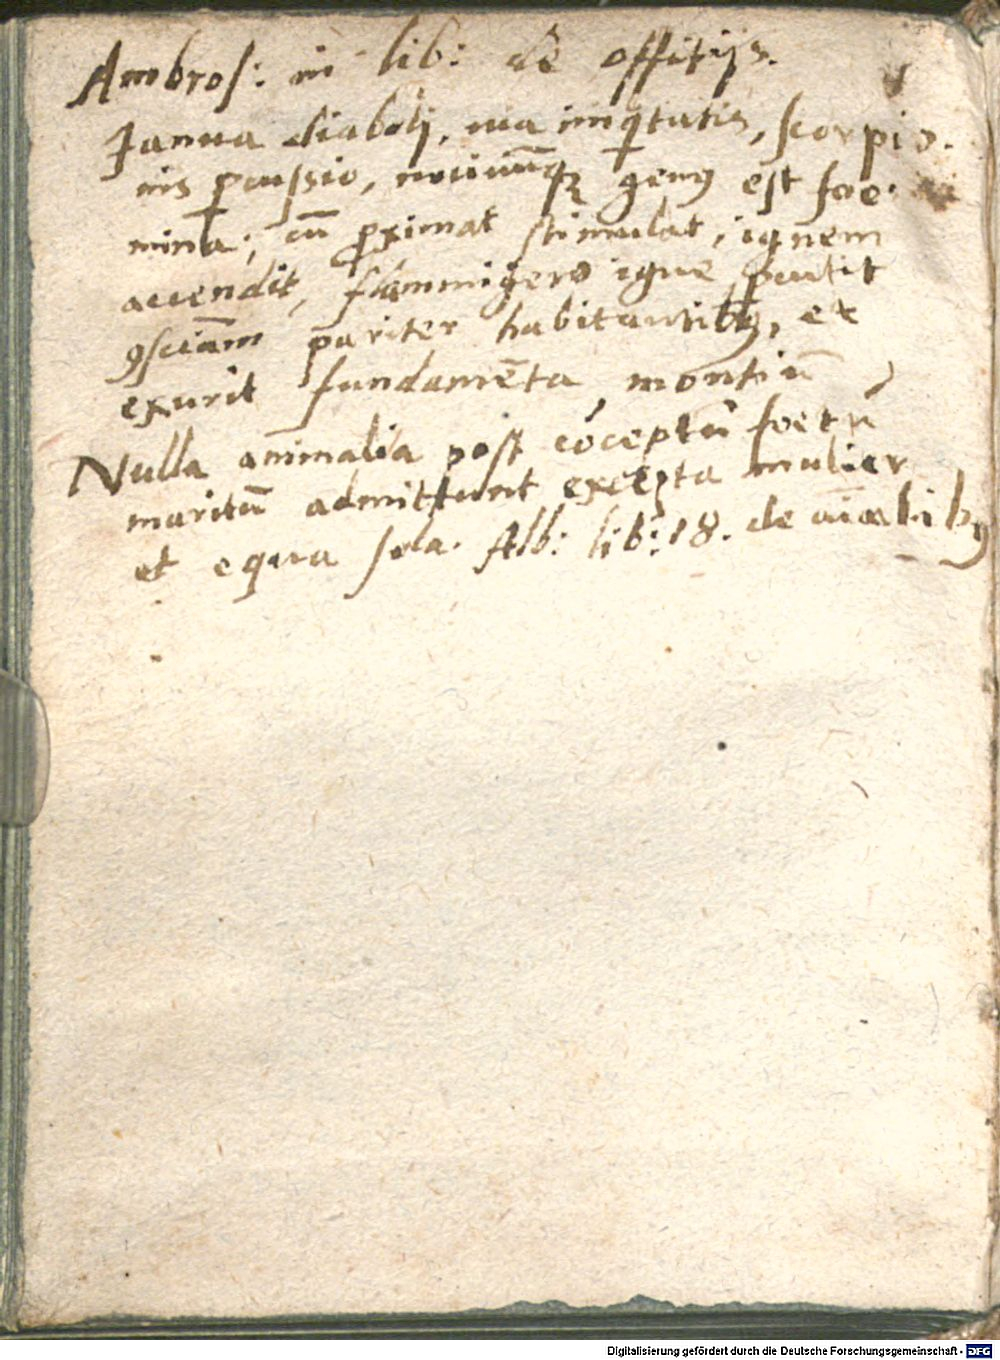 Ambros: in lib: de offitijs.
Janua diabolj, uia iniqͥtatis, scorpio-
nis ꝑcussio, nociuūqꝫ genꝰ est foe-
mina; cū ꝓximat stimulat, ignem
accendit, flammigero igne ꝑcutit
ꝯsciām pariter habitantibꝰ, et
exurit fundamēta montiū
Nulla animalia post cōceptū foetū
maritū admittunt excepta mulier
et equa sola. Alb: lib: 18. de aīalibꝰ
Digitalisierung gefördert durch die Deutsche Forschungsgemeinschaft - DFG